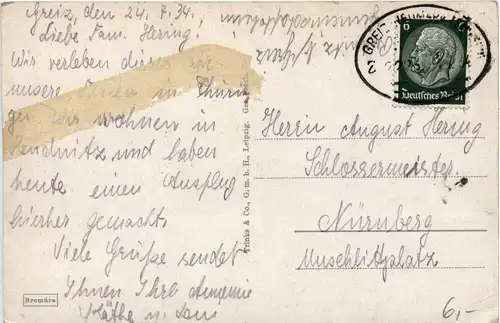 Greiz, den 24. 7. 34.
Liebe Fam. Hering.
Wir verleben dieses
unsere Ferien in Thürin
gen wir wohnen in
und haben
heute einen Ausflug
hierher gemacht
Viele Grüße sendet
Ihnen Ihre Annemie
Käthe u.
Bromüra
Trinks & Co., G. m. b. H., Leipzig.
6
Deutsches Reich
Herrn August Hering
Schlossermeister.
Nürnberg
Muschlittplatz
6,-